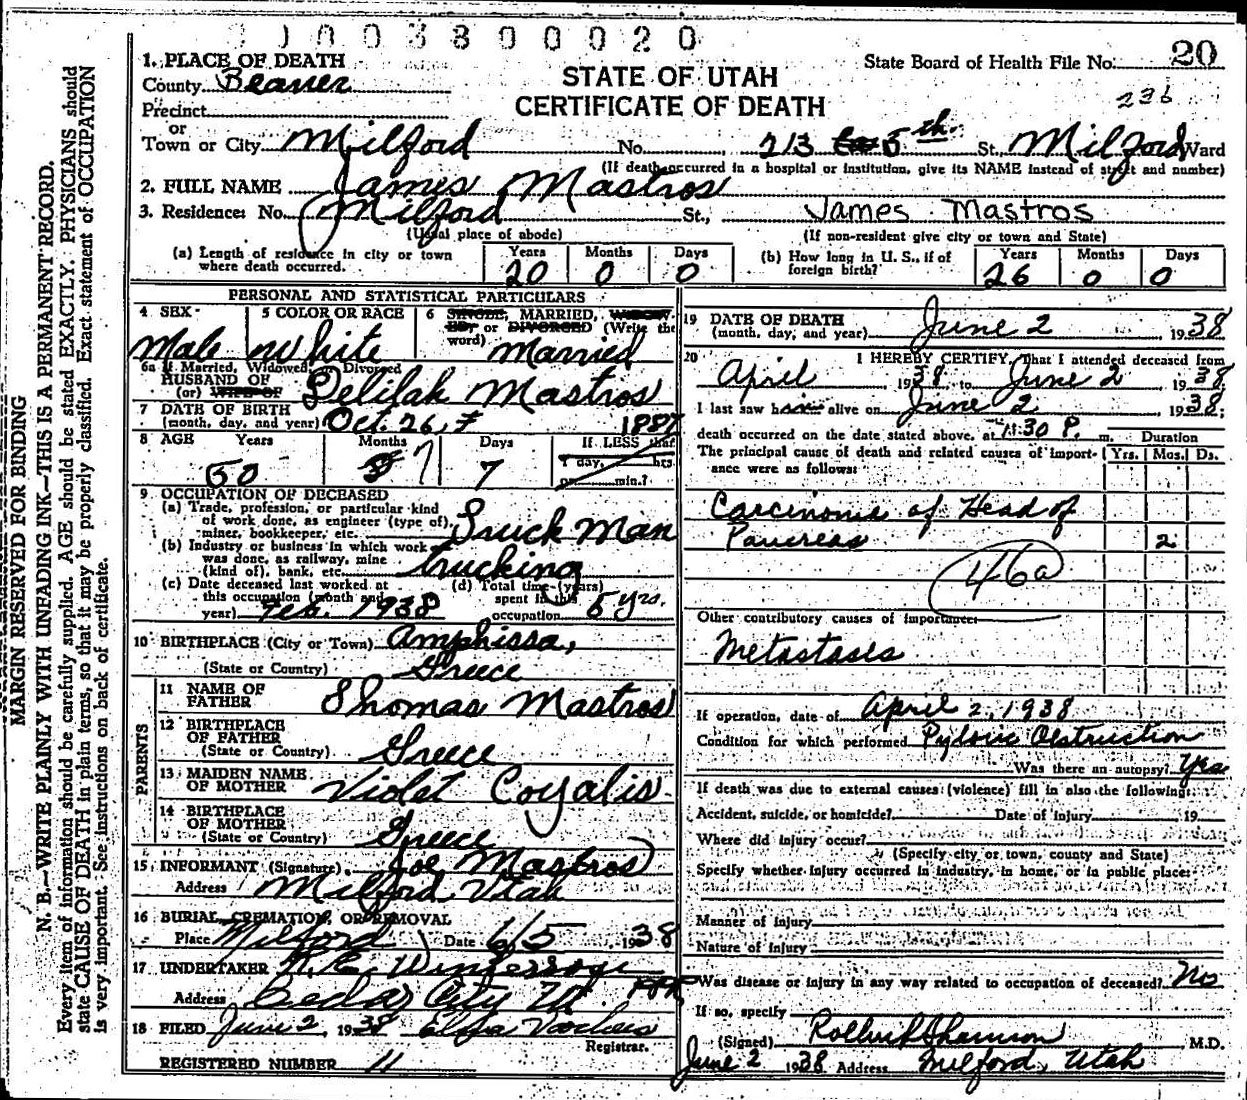 0 1 0 0 3 8 0 0 0 2 0
1. PLACE OF DEATH
County Beaver
STATE OF UTAH
CERTIFICATE OF DEATH
State Board of Health File No. 20
236
Precinct
or
Town or City Milford No. 213 5th St., Milford Ward
(If death occurred in a hospital or institution, give its NAME instead of street and number)
2. FULL NAME James Mastros
3. Residence: No. Milford St., James Mastros
(Usual place of abode) (If non-resident give city or town and State)
(a) Length of residence in city or town where death occurred. Years 20 Months 0 Days 0
(b) How long in U. S., if of foreign birth? Years 26 Months 0 Days 0
PERSONAL AND STATISTICAL PARTICULARS
4 SEX Male
5 COLOR OR RACE White
6 SINGLE, MARRIED, WIDOWED or DIVORCED (Write the word) Married
6a If Married, Widowed, or Divorced
HUSBAND OF
(or) WIFE OF Delilah Mastros
7 DATE OF BIRTH
(month, day, and year) Oct. 26, 1887
8 AGE Years 50 Months 7 Days 7 If LESS than
1 day, hrs.
or min.?
9 OCCUPATION OF DECEASED
(a) Trade, profession, or particular kind
of work done, as engineer (type of),
miner, bookkeeper, etc. Truck Man
(b) Industry or business in which work
was done, as railway, mine
(kind of), bank, etc. trucking
(c) Date deceased last worked at
this occupation (month and
year) Feb. 1938
(d) Total time (years)
spent in this
occupation 5 yrs.
10 BIRTHPLACE (City or Town) Amphissa,
(State or Country) Greece
PARENTS
11 NAME OF
FATHER Thomas Mastros
12 BIRTHPLACE
OF FATHER
(State or Country) Greece
13 MAIDEN NAME
OF MOTHER Violet Coyalis
14 BIRTHPLACE
OF MOTHER
(State or Country) Greece
15 INFORMANT (Signature) Joe Mastros
Address Milford Utah
16 BURIAL, CREMATION, OR REMOVAL
Place Milford Date 6/5 1938
17 UNDERTAKER
Address Cedar City Ut.
18 FILED June 2 1938
Registrar.
REGISTERED NUMBER 11
19 DATE OF DEATH
(month, day, and year) June 2 1938
20 I HEREBY CERTIFY, That I attended deceased from
April 1938 to June 2, 1938
I last saw him alive on June 2, 1938;
death occurred on the date stated above, at :30 P. m. Duration
The principal cause of death and related causes of importance were as follows: Yrs. Mos. Ds.
Carcinoma of Head of
Pancreas 2
46a
Other contributory causes of importance:
Metastases
If operation, date of April 2, 1938
Condition for which performed Pyloric Obstruction
Was there an autopsy? Yes
If death was due to external causes (violence) fill in also the following:
Accident, suicide, or homicide? Date of injury 19
Where did injury occur?
(Specify city or town, county and State)
Specify whether injury occurred in industry, in home, or in public place:
Manner of injury
Nature of injury
Was disease or injury in any way related to occupation of deceased? No
If so, specify
(Signed) M.D.
June 2 1938 Address Milford, Utah
MARGIN RESERVED FOR BINDING
N. B.—WRITE PLAINLY WITH UNFADING INK—THIS IS A PERMANENT RECORD.
Every item of information should be carefully supplied. AGE should be stated EXACTLY. PHYSICIANS should
state CAUSE OF DEATH in plain terms, so that it may be properly classified. Exact statement of OCCUPATION
is very important. See instructions on back of certificate.